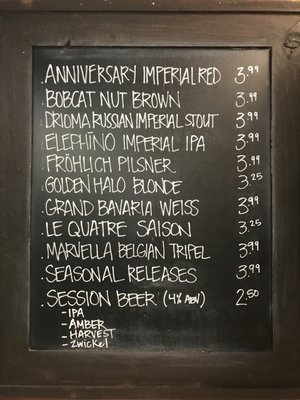 . ANNIVERSARY IMPERIAL RED 3.99
. BOBCAT NUT BROWN 3.99
. DRIOMA RUSSIAN IMPERIAL STOUT 3.99
. ELEPHINO IMPERIAL IPA 3.99
. FRÖHLICH PILSNER 3.99
. GOLDEN HALO BLONDE 3.25
. GRAND BAVARIA WEISS 3.99
. LE QUATRE SAISON 3.25
. MARVELLA BELGIAN TRIPEL 3.99
. SEASONAL RELEASES 3.99
. SESSION BEER (4% ABV) 2.50
- IPA
- AMBER
- HARVEST
- ZWICKEL